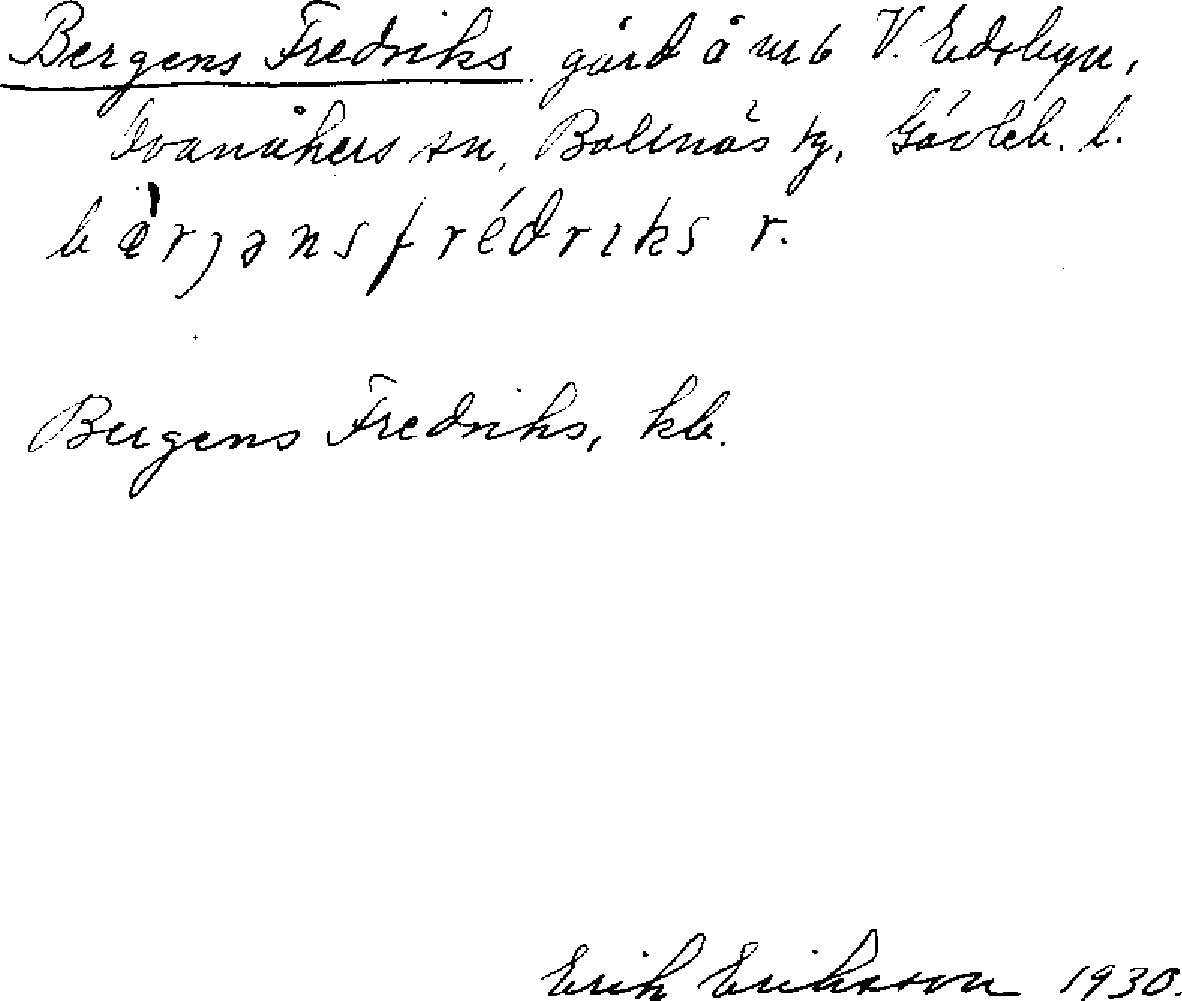 Bergens Fredriks gård å nr 6 V. Edsbyn,
Ovanåkers sn, Bollnäs tg, Gävleb. l.
bèrjənsfrédriks r.
Bergens Fredriks, kb.
Erik Eriksson 1930.